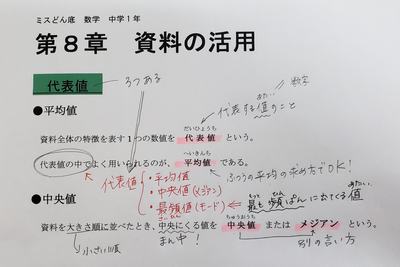 ミスどん底 数学 中学1年
第8章 資料の活用
代表値
3つある
数字
あたい
代表する値のこと
●平均値
だいひょうち
資料全体の特徴を表す1つの数値を 代表値 という。
へいきんち
代表値の中でよく用いられるのが、 平均値 である。
ふつうの平均の求め方でOK!
代表値
・平均値
・中央値(メジアン)
・最頻値(モード)
もっと
最も頻ぱんにでてくる値
あたい
●中央値
ちゅうおうち
資料を大きさ順に並べたとき、中央にくる値を 中央値 または メジアン という。
小さい順
まん中!
別の言い方